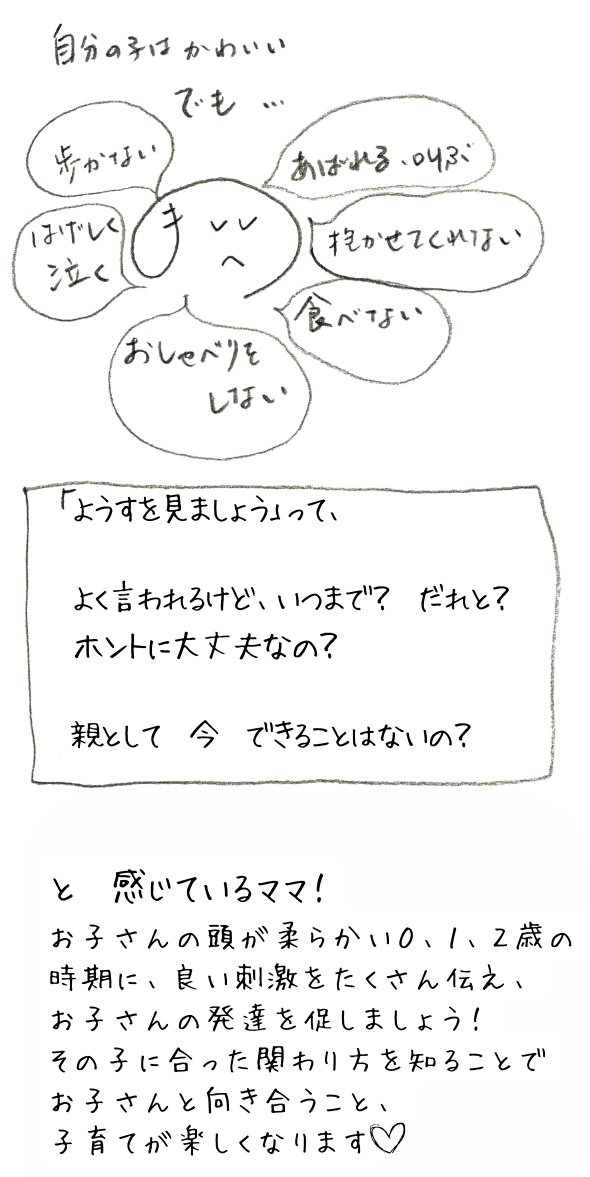 自分の子はかわいい
でも …
歩かない
あばれる、叫ぶ
はげしく
泣く
抱かせてくれない
食べない
おしゃべりを
しない
「ようすを見ましょう」って、
よく言われるけど、いつまで? だれと?
ホントに大丈夫なの?
親として 今 できることはないの?
と 感じているママ!
お子さんの頭が柔らかい0、1、2歳の
時期に、良い刺激をたくさん伝え、
お子さんの発達を促しましょう!
その子に合った関わり方を知ることで
お子さんと向き合うこと、
子育てが楽しくなります♡